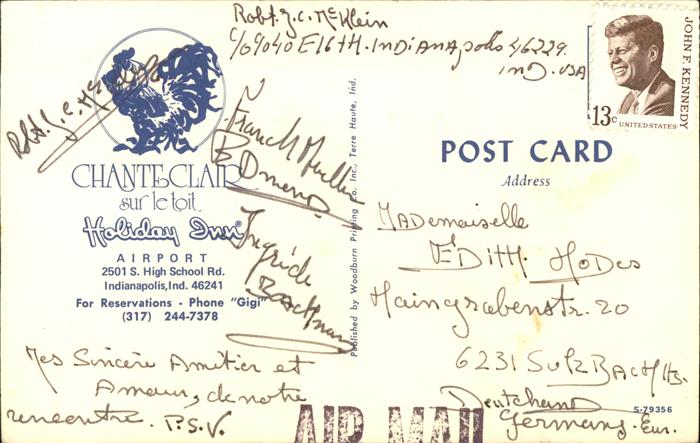 Robt. J. C. McKlein
c/o 9040 E 16TH. INDIANAPOLIS 46229.
IND. USA
JOHN F. KENNEDY
13c UNITED STATES
Robt. J. C.
CHANTECLAIR
sur le toit
Holiday Inn®
AIRPORT
2501 S. High School Rd.
Indianapolis, Ind. 46241
For Reservations - Phone "Gigi"
(317) 244-7378
Franck
Ingrid
Bachman
Mes Sincère Amitier et
Amour, de notre
rencontre. P.S.V.
Published by Woodburn Printing Co. Inc., Terre Haute, Ind.
POST CARD
Address
MADemoiselle
EDITH HODES
Haingrabenstr. 20
6231 SULZBACH/TS.
Deutchand
Germany-Eur.
S-79356
AIR MAIL